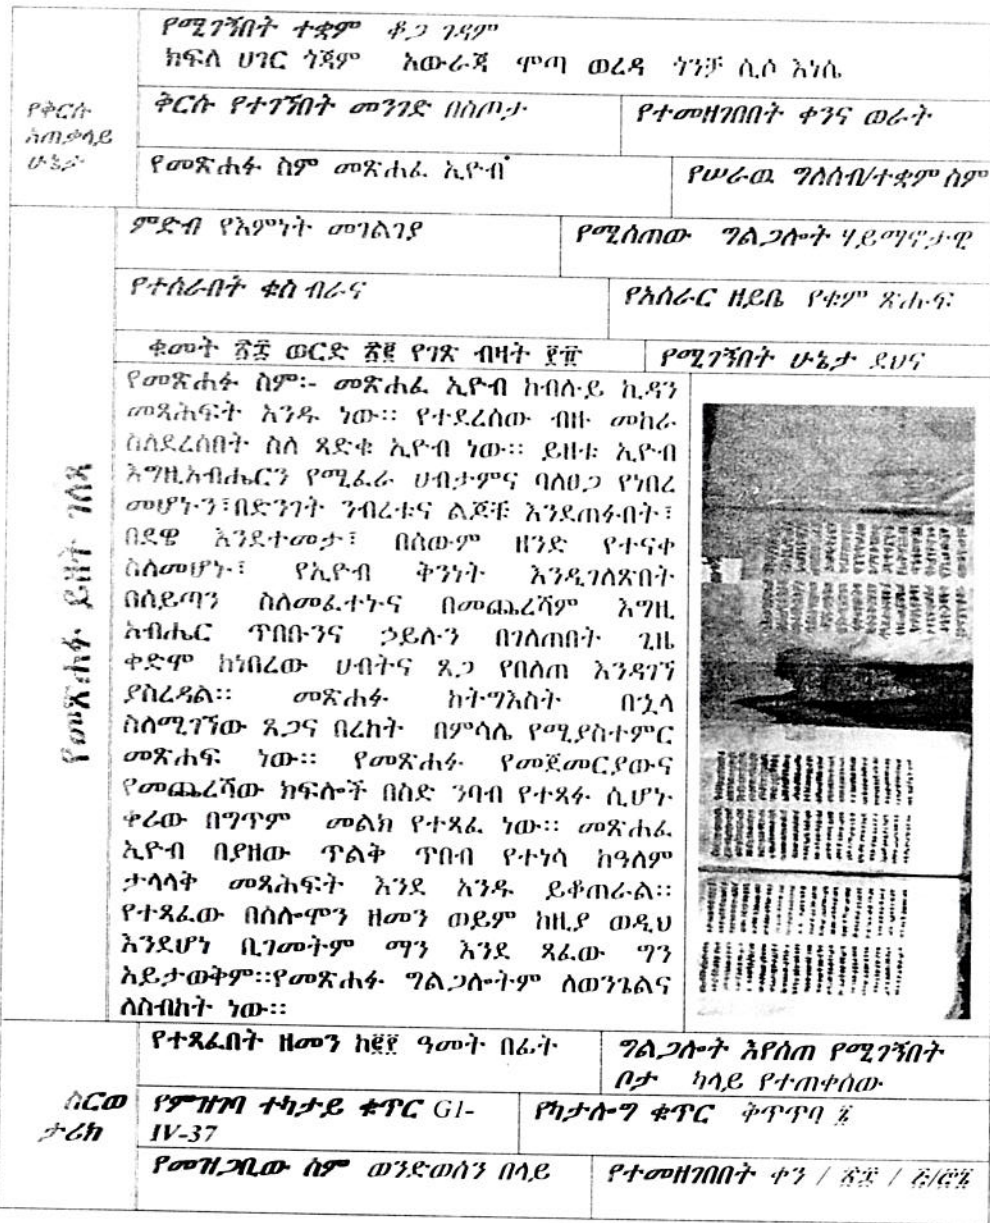 የሚገኝበት ተቋም ቆጋ ገዳም
ክፍለ ሀገር ጎጃም አውራጃ ሞጣ ወረዳ ጎንቻ ሲሶ እነሴ
የቅርሱ
አጠቃላይ
ሁኔታ
ቅርሱ የተገኘበት መንገድ በስጦታ
የተመዘገበበት ቀንና ወራት
የመጽሐፉ ስም መጽሐፈ ኢዮብ
የሠራዉ ግለሰብ/ተቋም ስም
ምድብ የእምነት መገልገያ
የሚሰጠው ግልጋሎት ሃይማኖታዊ
የተሰራበት ቁስ ብራና
የአሰራር ዘይቤ የቁም ጽሑፍ
ቁመት ወርድ የገጽ ብዛት
የሚገኝበት ሁኔታ ደህና
የመጽሐፉ ይዘት ገለጻ
የመጽሐፉ ስም፡- መጽሐፈ ኢዮብ ከብሉይ ኪዳን
መጻሕፍት አንዱ ነው። የተደረሰው ብዙ መከራ
ስለደረሰበት ስለ ጻድቁ ኢዮብ ነው። ይዘቱ ኢዮብ
እግዚአብሔርን የሚፈራ ሀብታምና ባለፀጋ የነበረ
መሆኑን፣በድንገት ንብረቱና ልጆቹ እንደጠፉበት፣
በደዌ እንደተመታ፣ በሰውም ዘንድ የተናቀ
ስለመሆኑ፣ የኢዮብ ቅንነት እንዲገለጽበት
በሰይጣን ስለመፈተኑና በመጨረሻም እግዚ
አብሔር ጥበቡንና ኃይሉን በገለጠበት ጊዜ
ቀድሞ ከነበረው ሀብትና ጸጋ የበለጠ እንዳገኘ
ያስረዳል። መጽሐፉ ከትግእስት በኋላ
ስለሚገኘው ጸጋና በረከት በምሳሌ የሚያስተምር
መጽሐፍ ነው። የመጽሐፉ የመጀመርያውና
የመጨረሻው ክፍሎች በስድ ንባብ የተጻፉ ሲሆኑ
ቀሪው በግጥም መልክ የተጻፈ ነው። መጽሐፈ
ኢዮብ በያዘው ጥልቅ ጥበብ የተነሳ ከዓለም
ታላላቅ መጻሕፍት እንደ አንዱ ይቆጠራል።
የተጻፈው በሰሎሞን ዘመን ወይም ከዚያ ወዲህ
እንደሆነ ቢገመትም ማን እንደ ጻፈው ግን
አይታወቅም።የመጽሐፉ ግልጋሎትም ለወንጌልና
ለስብከት ነው።
ስርወ
ታሪክ
የተጻፈበት ዘመን ዓመት በፊት
ግልጋሎት እየሰጠ የሚገኝበት
ቦታ ካላይ የተጠቀሰው
የምዝገባ ተከታይ ቁጥር G1-
IV-37
የካታሎግ ቁጥር ቅጥጥባ
የመዝጋቢው ስም ወንድወሰን በላይ
የተመዘገበበት ቀን